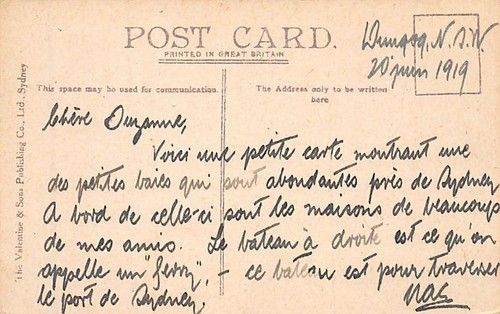 POST CARD.
PRINTED IN GREAT BRITAIN
Dungog, N.S.W
20 juin 1919
This space may be used for communication.
The Address only to be written
here
The Valentine & Sons Publishing Co., Ltd., Sydney
Chère Suzanne,
Voici une petite carte montrant une
des petites baies qui sont abondantes près de Sydney
A bord de celle-ci sont les maisons de beaucoup
de mes amis. Le bateau à droite est ce qu'on
appelle un "ferry", - ce bateau est pour traverser
le port de Sydney.